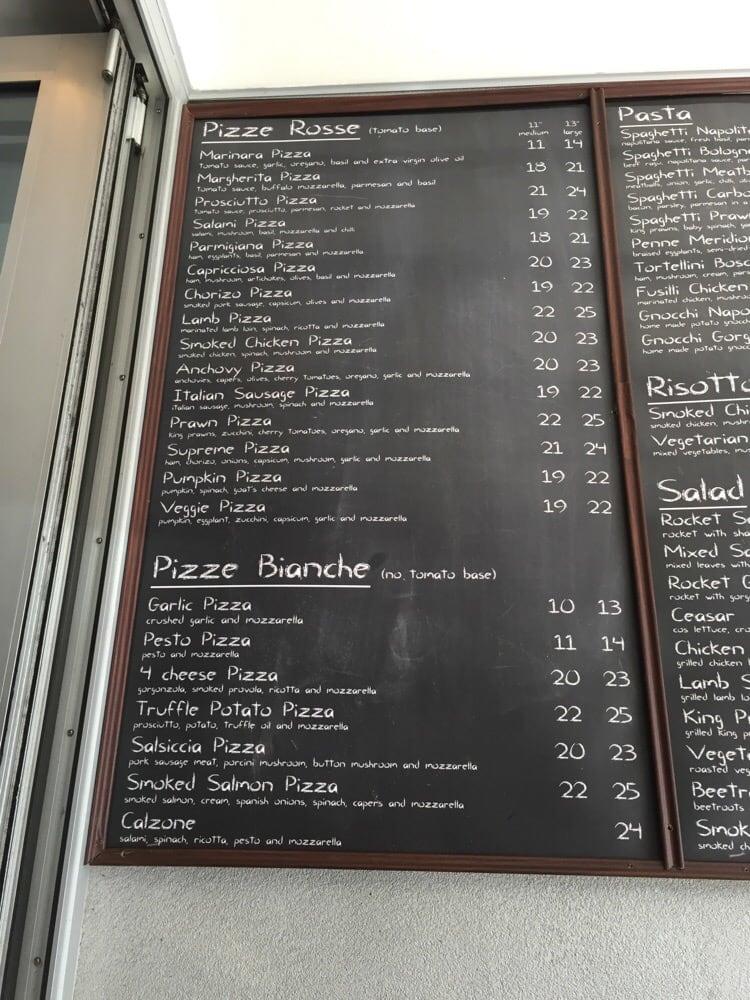 Pizze Rosse (tomato base) 11" medium 13" large
Marinara Pizza 11 14
tomato sauce, garlic, oregano, basil and extra virgin olive oil
Margherita Pizza 18 21
tomato sauce, buffalo mozzarella, parmesan and basil
Prosciutto Pizza 21 24
tomato sauce, prosciutto, parmesan, rocket and mozzarella
Salami Pizza 19 22
salami, mushroom, basil, mozzarella and chilli
Parmigiana Pizza 18 21
ham, eggplants, basil, parmesan and mozzarella
Capricciosa Pizza 20 23
ham, mushroom, artichokes, olives, basil and mozzarella
Chorizo Pizza 19 22
smoked pork sausage, capsicum, olives and mozzarella
Lamb Pizza 22 25
marinated lamb loin, spinach, ricotta and mozzarella
Smoked Chicken Pizza 20 23
smoked chicken, spinach, mushroom and mozzarella
Anchovy Pizza 20 23
anchovies, capers, olives, cherry tomatoes, oregano, garlic and mozzarella
Italian Sausage Pizza 19 22
italian sausage, mushroom, spinach and mozzarella
Prawn Pizza 22 25
king prawns, zucchini, cherry tomatoes, oregano, garlic and mozzarella
Supreme Pizza 21 24
ham, chorizo, onions, capsicum, mushroom, garlic and mozzarella
Pumpkin Pizza 19 22
pumpkin, spinach, goat's cheese and mozzarella
Veggie Pizza 19 22
pumpkin, eggplant, zucchini, capsicum, garlic and mozzarella
Pizze Bianche (no tomato base)
Garlic Pizza 10 13
crushed garlic and mozzarella
Pesto Pizza 11 14
pesto and mozzarella
4 cheese Pizza 20 23
gorgonzola, smoked provola, ricotta and mozzarella
Truffle Potato Pizza 22 25
prosciutto, potato, truffle oil and mozzarella
Salsiccia Pizza 20 23
pork sausage meat, porcini mushroom, button mushroom and mozzarella
Smoked Salmon Pizza 22 25
smoked salmon, cream, spanish onions, spinach, capers and mozzarella
Calzone 24
salami, spinach, ricotta, pesto and mozzarella
Pasta
Spaghetti Napolit
napolitana sauce, fresh basil,
Spaghetti Bologn
beef ragu, napolitana sauce,
Spaghetti Meatb
meatballs, onion, garlic, chilli,
Spaghetti Carb
bacon, parsley, parmesan in a
Spaghetti Praw
king prawns, baby spinach,
Penne Meridio
braised eggplants, semi-dried
Tortellini Bosc
ham, mushroom, cream,
Fusilli Chicken
marinated chicken,
Gnocchi Napo
home made potato gnocc
Gnocchi Gorg
home made potato gnocc
Risotto
Smoked Chi
smoked chicken,
Vegetarian
mixed vegetables,
Salad
Rocket S
rocket with sha
Mixed Sa
mixed leaves with
Rocket G
rocket with gorg
Ceasar
cos lettuce, cro
Chicken
grilled chicken
Lamb S
grilled lamb lo
King P
grilled king p
Veget
roasted veg
Beetr
beetroots
Smok
smoked ch